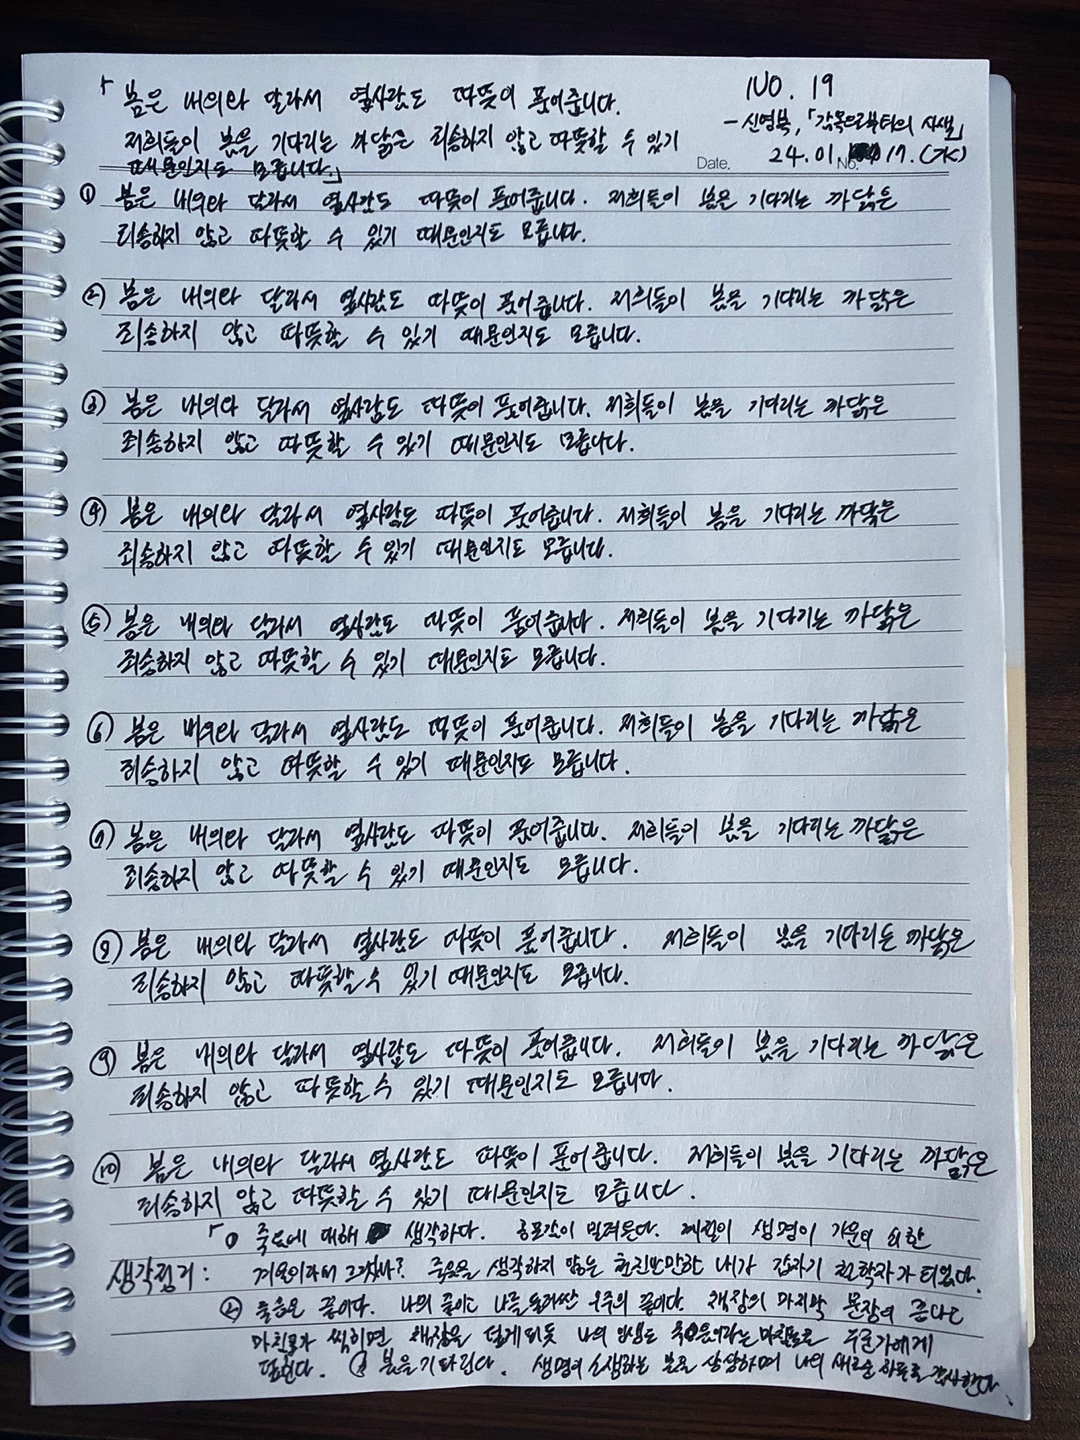 「봄은 내의와 달라서 옆사람도 따뜻이 품어줍니다.
저희들이 봄을 기다리는 까닭은 죄송하지 않고 따뜻할 수 있기
때문인지도 모릅니다.」
NO. 19
- 신영복, 「감옥으로부터의 사색」
Date. 24. 01. No. 17. (水)
① 봄은 내의와 달라서 옆사람도 따뜻이 품어줍니다. 저희들이 봄은 기다리는 까닭은
죄송하지 않고 따뜻할 수 있기 때문인지도 모릅니다.
② 봄은 내의와 달라서 옆사람도 따뜻이 품어줍니다. 저희들이 봄을 기다리는 까닭은
죄송하지 않고 따뜻할 수 있기 때문인지도 모릅니다.
③ 봄은 내의와 달라서 옆사람도 따뜻이 품어줍니다. 저희들이 봄을 기다리는 까닭은
죄송하지 않고 따뜻할 수 있기 때문인지도 모릅니다.
④ 봄은 내의와 달라서 옆사람도 따뜻이 품어줍니다. 저희들이 봄을 기다리는 까닭은
죄송하지 않고 따뜻할 수 있기 때문인지도 모릅니다.
⑤ 봄은 내의와 달라서 옆사람도 따뜻이 품어줍니다. 저희들이 봄을 기다리는 까닭은
죄송하지 않고 따뜻할 수 있기 때문인지도 모릅니다.
⑥ 봄은 내의와 달라서 옆사람도 따뜻이 품어줍니다. 저희들이 봄을 기다리는 까닭은
죄송하지 않고 따뜻할 수 있기 때문인지도 모릅니다.
⑦ 봄은 내의와 달라서 옆사람도 따뜻이 품어줍니다. 저희들이 봄을 기다리는 까닭은
죄송하지 않고 따뜻할 수 있기 때문인지도 모릅니다.
⑧ 봄은 내의와 달라서 옆사람도 따뜻이 품어줍니다. 저희들이 봄을 기다리는 까닭은
죄송하지 않고 따뜻할 수 있기 때문인지도 모릅니다.
⑨ 봄은 내의와 달라서 옆사람도 따뜻이 품어줍니다. 저희들이 봄을 기다리는 까닭은
죄송하지 않고 따뜻할 수 있기 때문인지도 모릅니다.
⑩ 봄은 내의와 달라서 옆사람도 따뜻이 품어줍니다. 저희들이 봄을 기다리는 까닭은
죄송하지 않고 따뜻할 수 있기 때문인지도 모릅니다.
「① 죽음에 대해 생각하다. 공포감이 밀려온다. 계절이 생명이 가운이 쇠한
생각정거: 겨울이라서 그랬나? 죽음을 생각하지 않는 천진난만한 내가 갑자기 철학자가 되었다.
② 죽음은 끝이다. 나의 끝이고 나를 둘러싼 우주의 끝이다. 책장의 마지막 문장이 끝나고
마침표가 찍히면 책장을 덮게 되듯 나의 인생도 죽음이라는 마침표로 누군가에게
덮힌다. ③ 봄을 기다린다. 생명이 소생하는 봄을 상상하며 나의 새로운 하루를 감사한다.